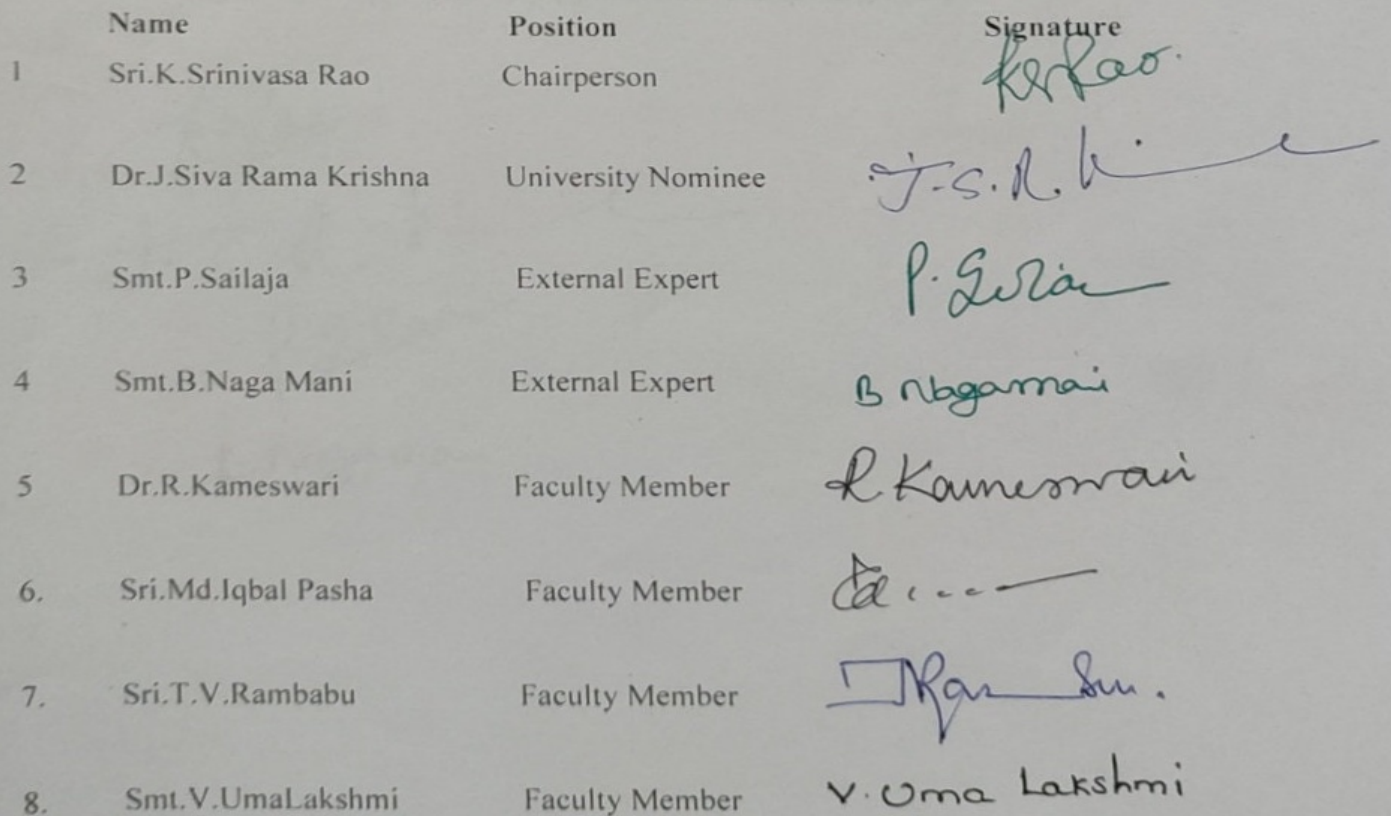 Name Position Signature
1 Sri.K.Srinivasa Rao Chairperson KSRao.
2 Dr.J.Siva Rama Krishna University Nominee J.S.R.
3 Smt.P.Sailaja External Expert P.
4 Smt.B.Naga Mani External Expert B Nagamani
5 Dr.R.Kameswari Faculty Member R Kameswari
6. Sri.Md.Iqbal Pasha Faculty Member
7. Sri.T.V.Rambabu Faculty Member
8. Smt.V.UmaLakshmi Faculty Member V. Uma Lakshmi